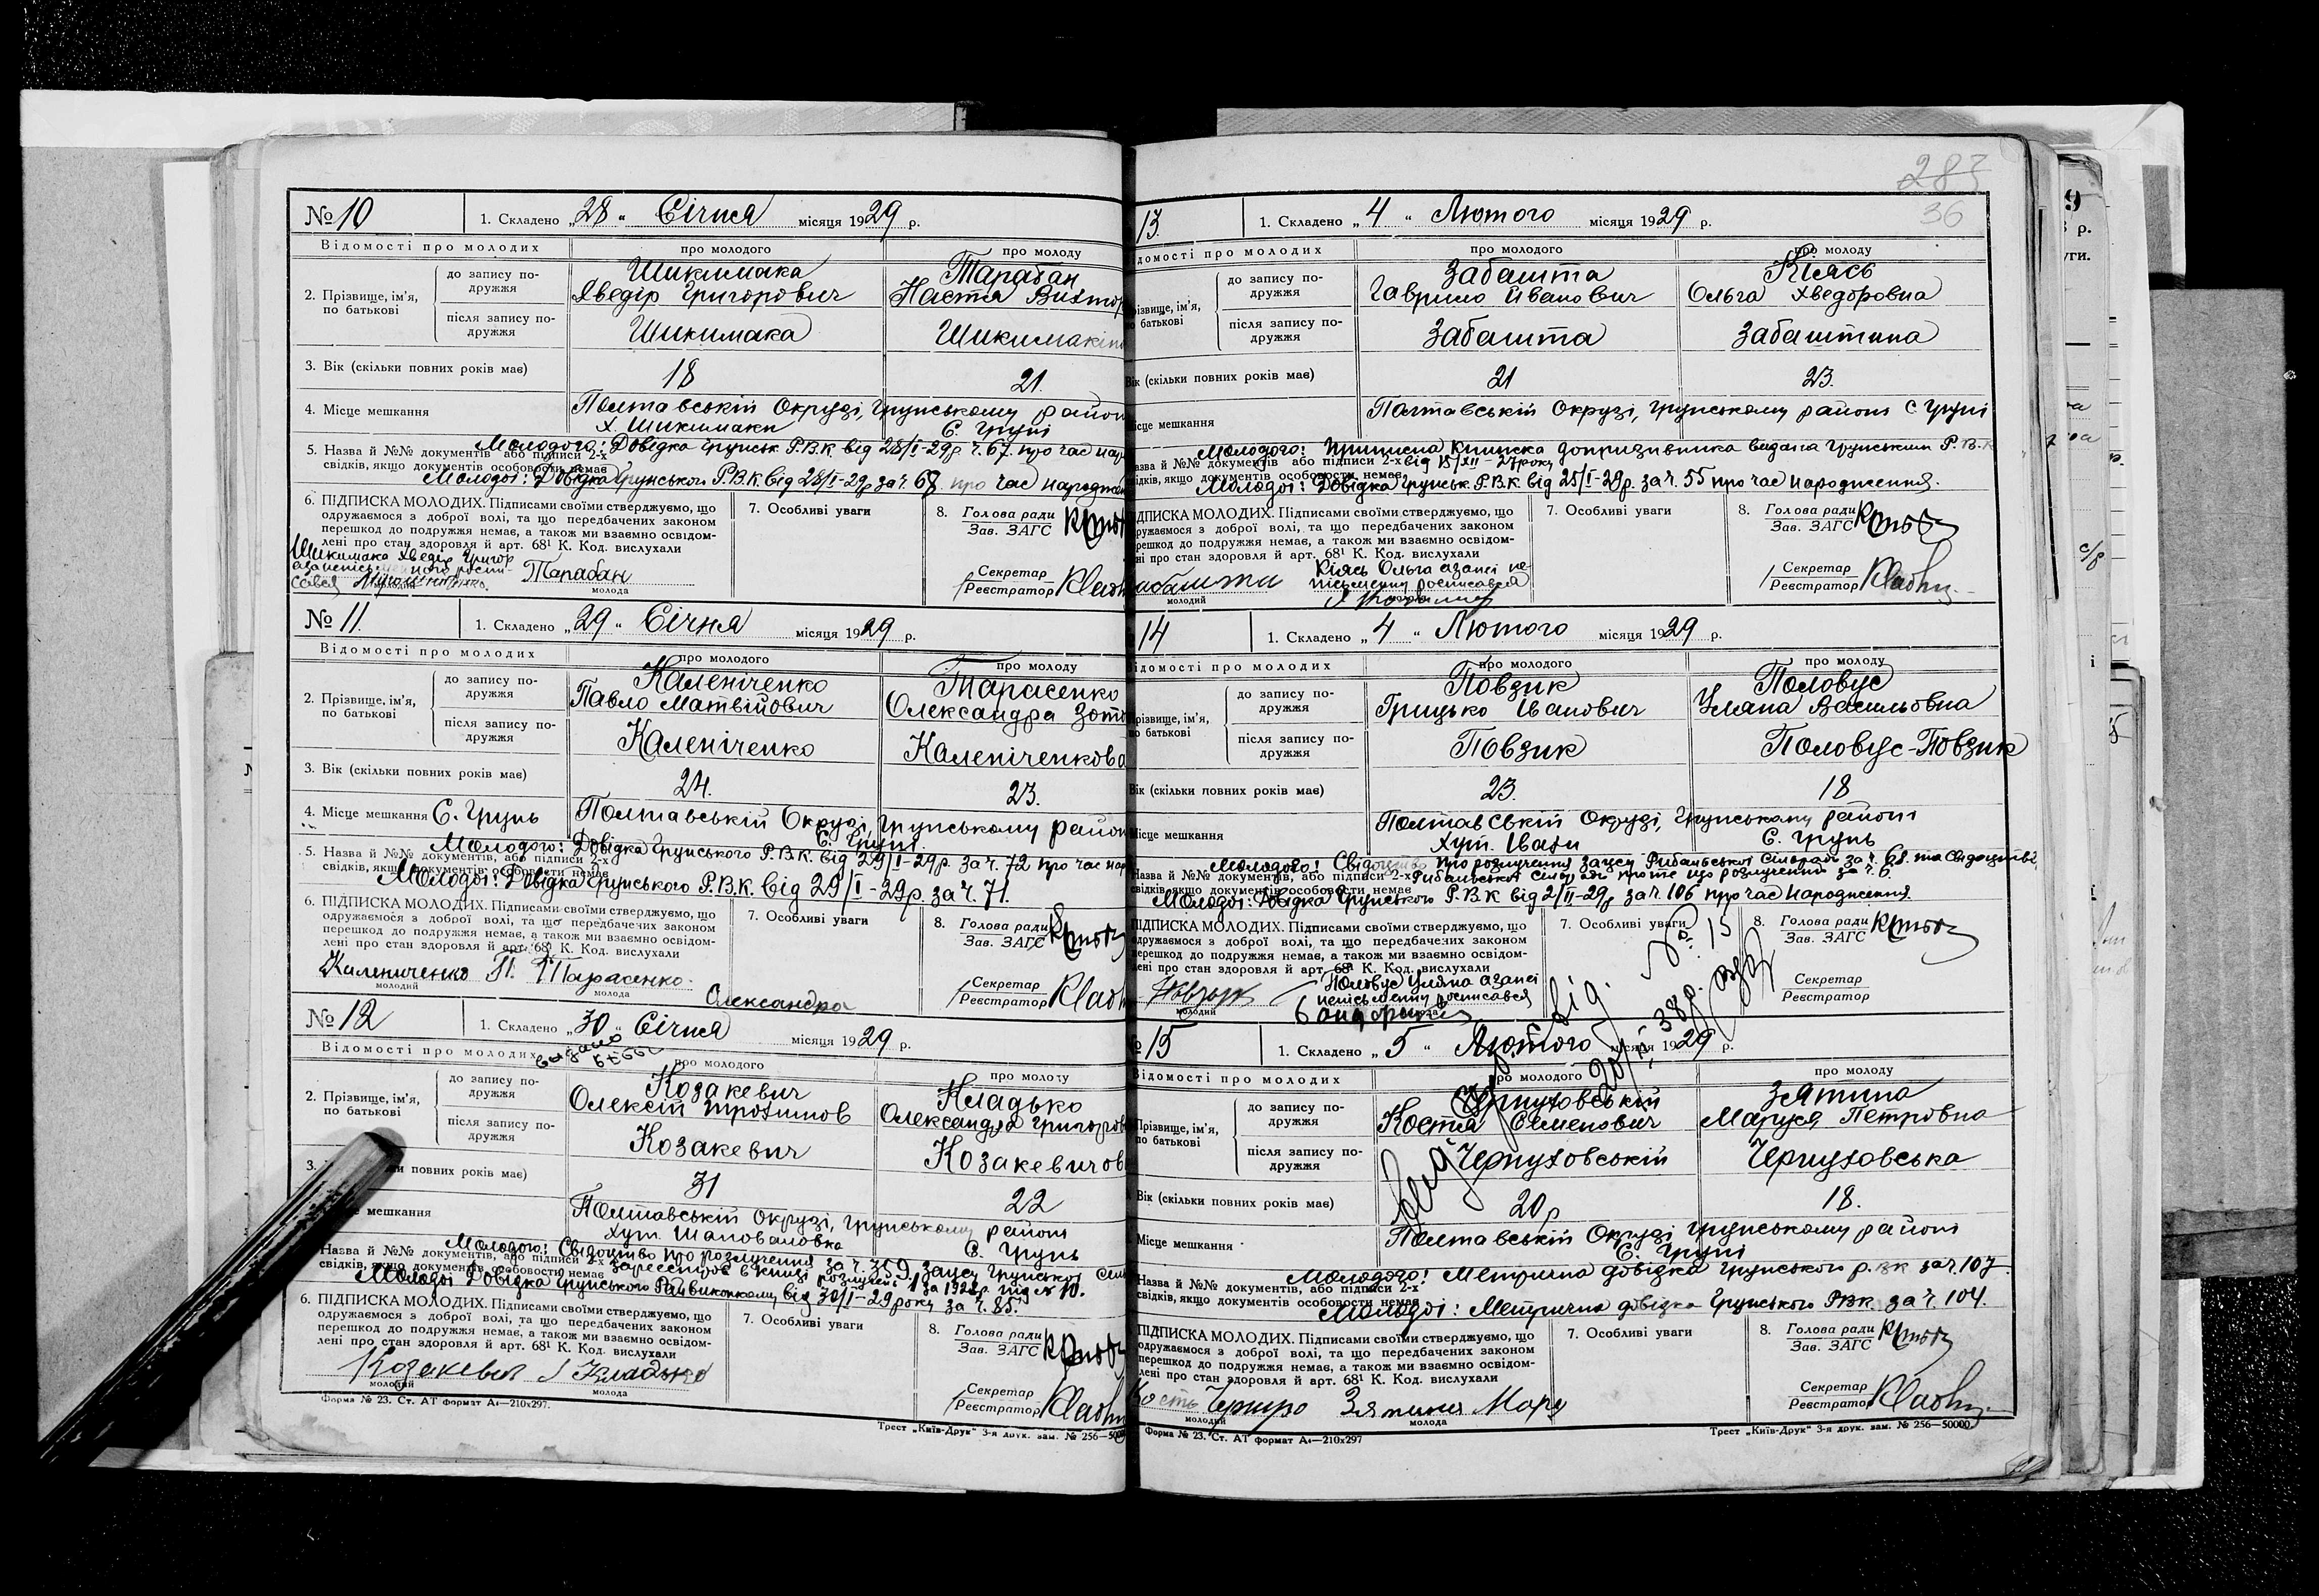 № 10
1. Складено „28" Січня місяця 1929 р.
Відомості про молодих
про молодого
про молоду
2. Прізвище, ім'я, по батькові
до запису подружжя
Шикимака
Хведір Григорович
Тарабан
Настя Виктор
після запису подружжя
Шикимака
Шикимакіна
3. Вік (скільки повних років має)
18
21.
4. Місце мешкання
Полтавській Окрузі, Грунському район
х. Шикимаки
С. Груні
5. Назва й №№ документів або підписи 2-х
свідків, якщо документів особовости немає
Молодого: Довідка Грунськ Р.В.К. від 28/I-29р ч. 67 про час нар
Молодої: Довідка Грунського Р.В.К. від 28/I-29р за ч. 68 про час народжен
6. ПІДПИСКА МОЛОДИХ. Підписами своїми стверджуємо, що
одружаємося з доброї волі, та що передбачених законом
перешкод до подружжя немає, а також ми взаємно освідом-
лені про стан здоровля й арт. 68¹ К. Код. вислухали
Шикимака Хведір Григор
Тарабан
молода
7. Особливі уваги
8. Голова ради
Зав. ЗАГС
Секретар
Реєстратор
№ 11.
1. Складено „29" Січня місяця 1929 р.
Відомості про молодих
про молодого
про молоду
2. Прізвище, ім'я, по батькові
до запису подружжя
Каленіченко
Павло Матвійович
Тарасенко
Олександра Зот
після запису подружжя
Каленіченко
Каленіченкова
3. Вік (скільки повних років має)
24.
23.
4. Місце мешкання С. Грунь
Полтавській Окрузі, Грунському район
С. Груні.
5. Назва й №№ документів, або підписи 2-х
свідків, якщо документів особовости немає
Молодого: Довідка Грунського Р.В.К. від 29/I-29р. за ч. 72 про час нар
Молодої: Довідка Грунського Р.В.К. від 29/I-29р. за ч. 71.
6. ПІДПИСКА МОЛОДИХ. Підписами своїми стверджуємо, що
одружаємося з доброї волі, та що передбачених законом
перешкод до подружжя немає, а також ми взаємно освідом-
лені про стан здоровля й арт. 68¹ К. Код. вислухали
Калениченко П. Тарасенко.
Олександра
молодий
молода
7. Особливі уваги
8. Голова ради
Зав. ЗАГС
Секретар
Реєстратор
№ 12
1. Складено „30" Січня місяця 1929 р.
Відомості про молодих
видано
про молодого
про молоду
2. Прізвище, ім'я, по батькові
до запису подружжя
Козакевич
Олексій Трохимов
Кладько
Олександра Григоров
після запису подружжя
Козакевич
Козакевичов
3. повних років має)
31
22
мешкання
Полтавській Окрузі, Грунському районі
Хут. Шаповаловка
С. Грунь
Назва й №№ документів, або підписи 2-х
свідків, якщо документів особовости немає
Молодого: Свідоцтво про розлучення за ч. 319, загсу Грунської сіль
зареєстров в книзі розлучень за 1928р. під № 10.
Молодої Довідка Грунського Райвиконкому від 30/I-29 року за ч. 85.
6. ПІДПИСКА МОЛОДИХ. Підписами своїми стверджуємо, що
одружаємося з доброї волі, та що передбачених законом
перешкод до подружжя немає, а також ми взаємно освідом-
лені про стан здоровля й арт. 68¹ К. Код. вислухали
Козакевич Кладько
молодий
молода
7. Особливі уваги
8. Голова ради
Зав. ЗАГС
Секретар
Реєстратор
Форма № 23. Ст. АТ формат А₄—210х297.
Трест „Київ-Друк" 3-я друк. зам. № 256—5000
36
13.
1. Складено „4" Лютого місяця 1929 р.
домості про молодих
про молодого
про молоду
різвище, ім'я, батькові
до запису подружжя
Забашта
Гаврило Іванович
Кіясь
Ольга Хведоровна
після запису подружжя
Забашта
Забаштина
Вік (скільки повних років має)
21
23.
Місце мешкання
Полтавській Окрузі, Грунському районі С Груні
Назва й №№ документів або підписи 2-х
свідків, якщо документів особовости немає
Молодого: Приписна Книжка допризивника видана Грунським Р.В.К
від 15/XII-27 року
Молодої: Довідка Грунськ. Р.В.К. від 25/I-29р. за ч. 55 про час народження.
ПІДПИСКА МОЛОДИХ. Підписами своїми стверджуємо, що
одружаємося з доброї волі, та що передбачених законом
перешкод до подружжя немає, а також ми взаємно освідом-
лені про стан здоровля й арт. 68¹ К. Код. вислухали
Кіясь Ольга а за неї не-
письменну росписався
молодий
7. Особливі уваги
8. Голова ради
Зав. ЗАГС
Секретар
Реєстратор
14
1. Складено „4" Лютого місяця 1929 р.
ідомості про молодих
про молодого
про молоду
різвище, ім'я, батькові
до запису подружжя
Повзик
Грицько Іванович
Половус
Уляна Васильовна
після запису подружжя
Повзик
Половус-Повзик
Вік (скільки повних років має)
23.
18
Місце мешкання
Полтавській Окрузі, Грунському районі
Хут. Івани
С. Грунь
Назва й №№ документів, або підписи 2-х
свідків, якщо документів особовости немає
Молодого: Свідоцтво про розлучення загсу Рибальської сільради за ч. 68. та свідоцтві
Рибальської сільради проте що розлучений за ч. 6.
Молодої: Довідка Грунського Р.В.К від 2/II-29р за ч. 106 про час народження.
ПІДПИСКА МОЛОДИХ. Підписами своїми стверджуємо, що
одружаємося з доброї волі, та що передбачених законом
перешкод до подружжя немає, а також ми взаємно освідом-
лені про стан здоровля й арт. 68¹ К. Код. вислухали
Половус Уляна а за неї
неписьменну росписався
молодий
7. Особливі уваги
8. Голова ради
Зав. ЗАГС
Секретар
Реєстратор
№ 15
1. Складено „5" Лютого місяця 1929 р.
Відомості про молодих
про молодого
про молоду
Прізвище, ім'я, по батькові
до запису подружжя
Чернуховський
Костя Семенович
Зятина
Маруся Петровна
після запису подружжя
Чернуховській
Чернуховська
Вік (скільки повних років має)
20р
18.
Місце мешкання
Полтавській Окрузі Грунському районі
С. Груні
Назва й №№ документів, або підписи 2-х
свідків, якщо документів особовости немає
Молодого: Метрична довідка Грунського р.вк за ч. 107.
Молодої: Метрична довідка Грунського РВК. за ч. 104.
ПІДПИСКА МОЛОДИХ. Підписами своїми стверджуємо, що
одружаємося з доброї волі, та що передбачених законом
перешкод до подружжя немає, а також ми взаємно освідом-
лені про стан здоровля й арт. 68¹ К. Код. вислухали
молодий
молода
7. Особливі уваги
8. Голова ради
Зав. ЗАГС
Секретар
Реєстратор
Форма № 23. Ст. АТ формат А₄—210х297
Трест „Київ-Друк" 3-я друк. зам. № 256—50000